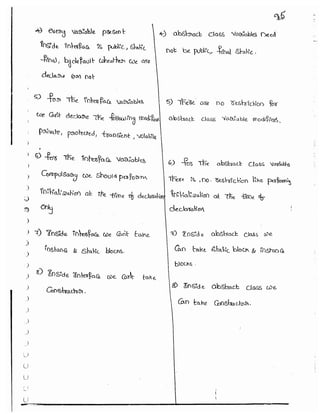 95
4) Every variable present
inside interface is public, static
final, by default whether we are
declare or not
4) abstract class variables need
not be public, final static.
5) for The interface variables
we can't declare the following modifiers
private, protected, transient, volatile
5) There are no restriction for
abstract class variable modifiers.
6) for The interface variables
Compulsory we should perform
initialization at the time of declaration
only
6) for The abstract class variable
There is no restriction like performing
initialization at the time of
declaration
7) Inside interface we can't take
instance & static blocks.
7) Inside abstract class we
Can take static block & instance
blocks.
8) Inside interface we can't take
Constructor.
8) Inside abstract class we
Can take constructor.